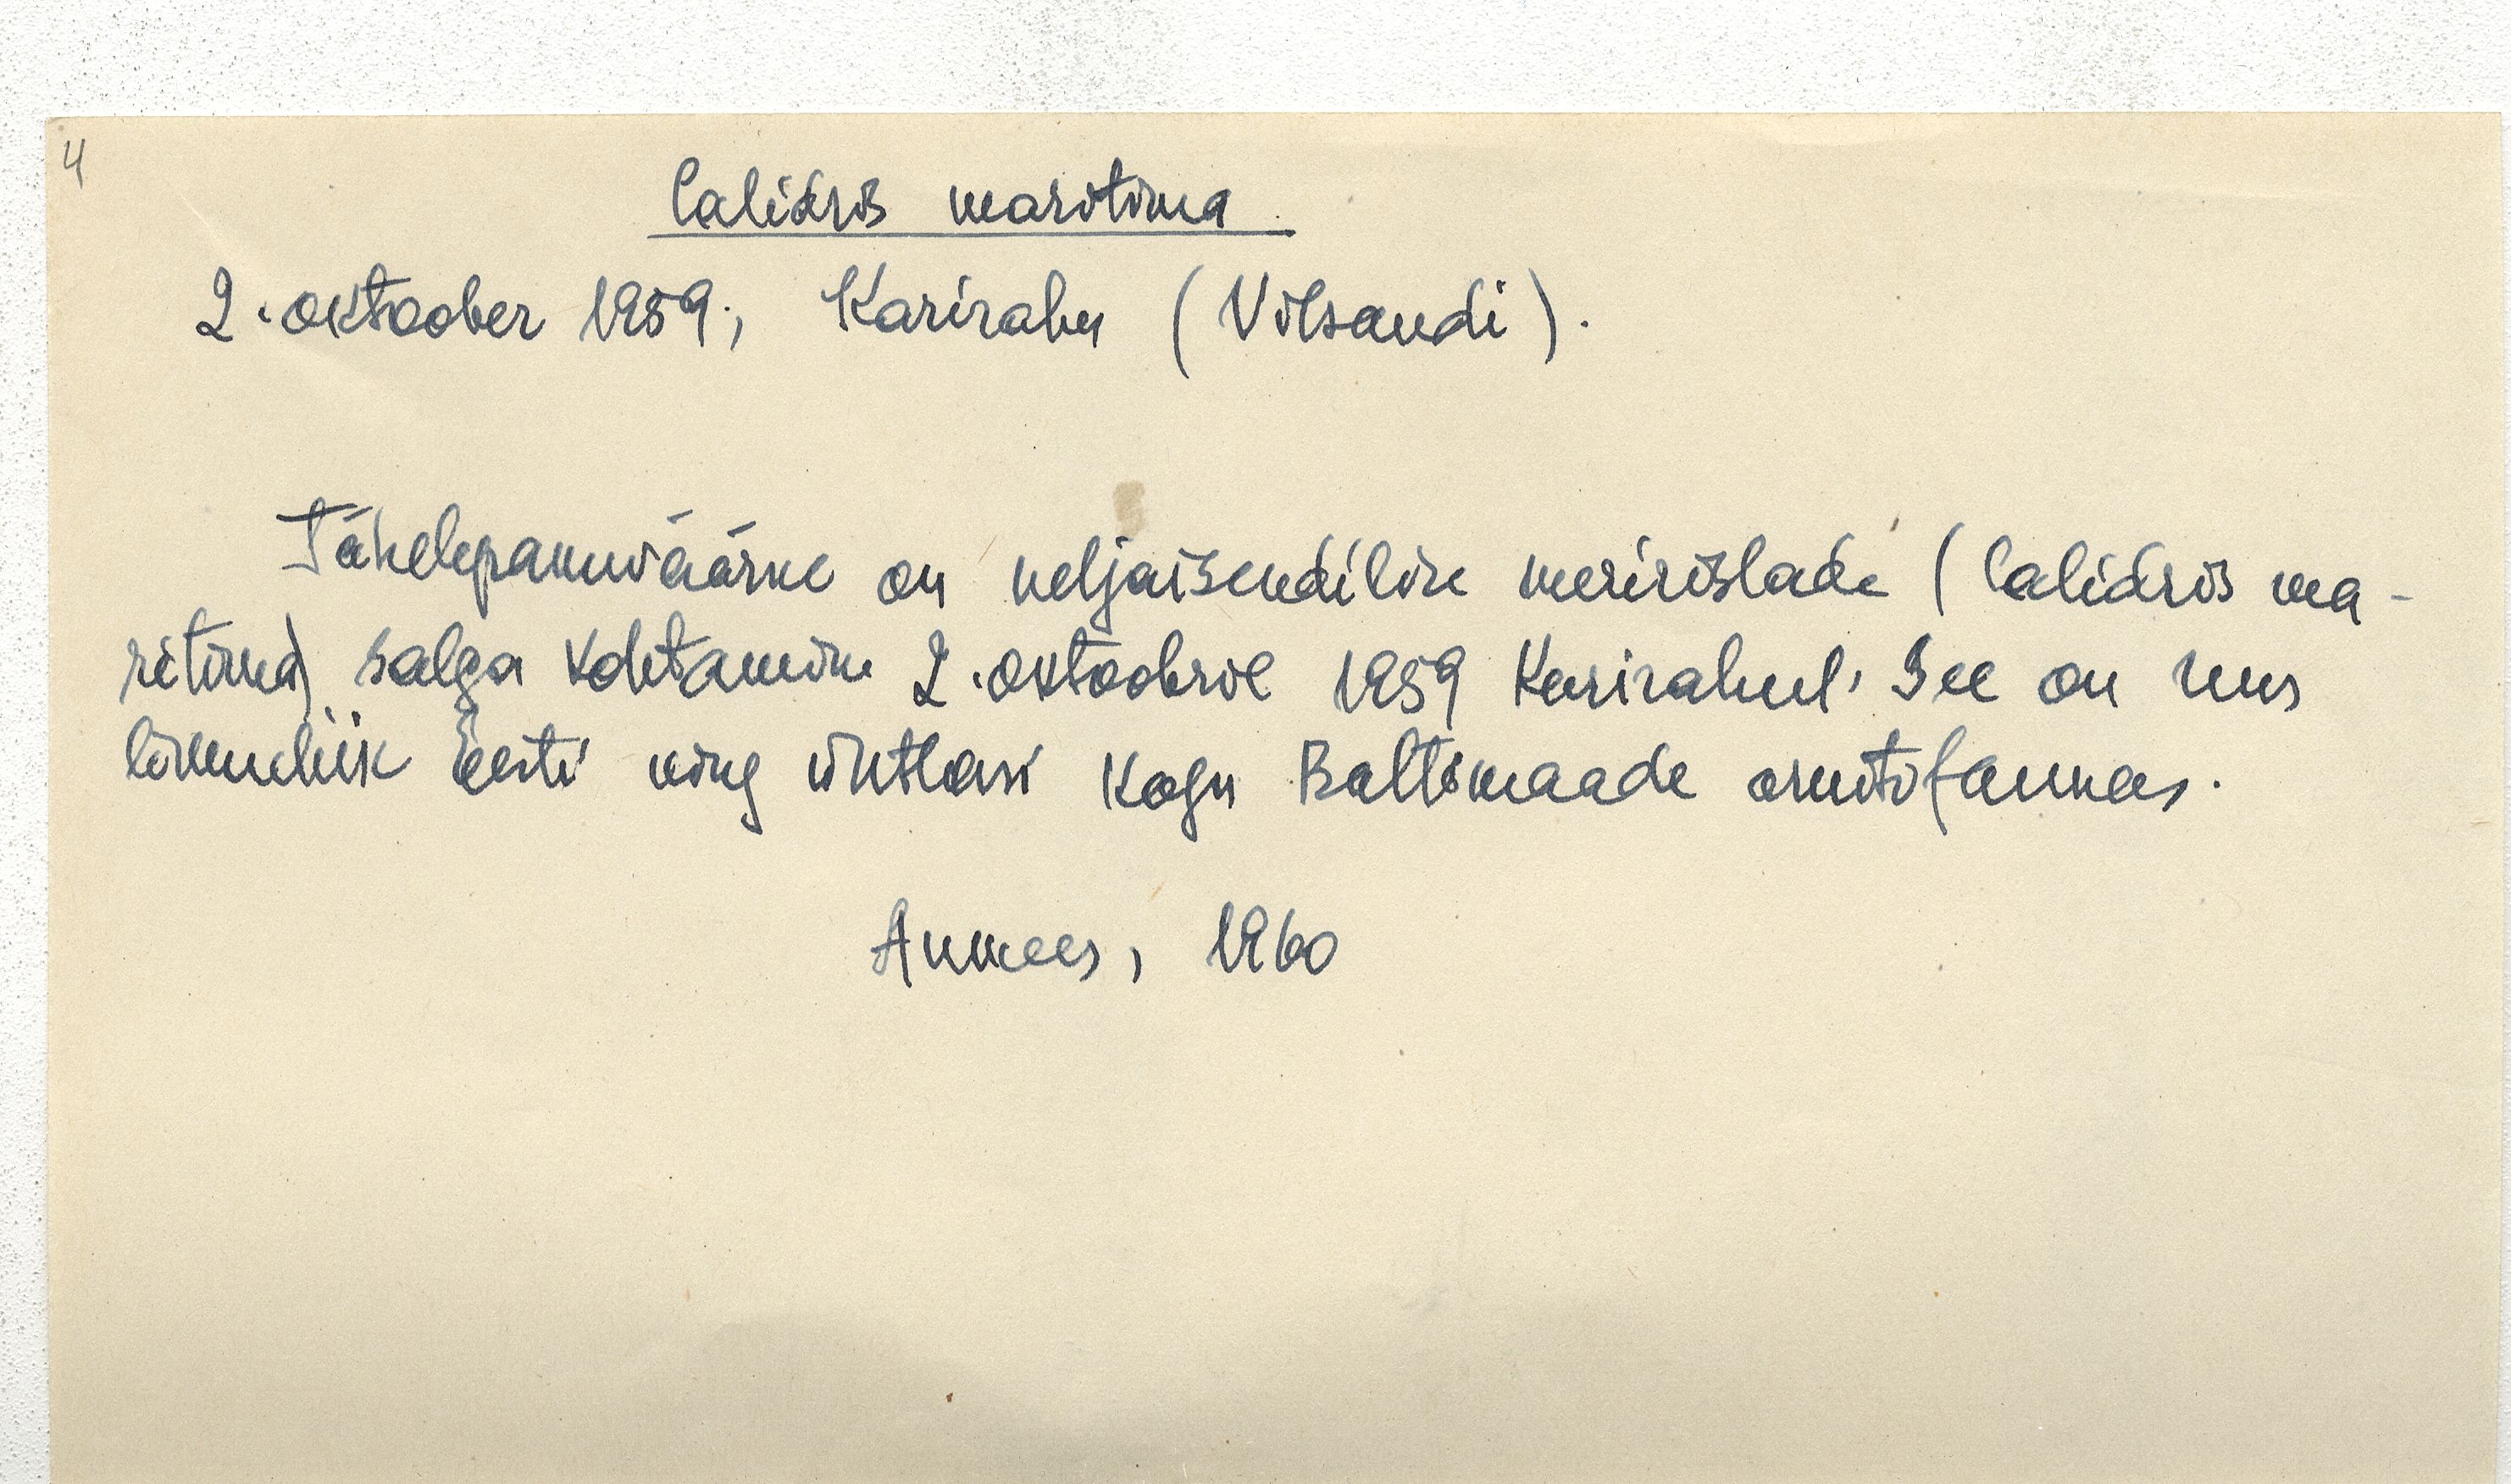 4
Calidris maritima
2. oktoober 1959., Karirahu (Vilsandi).
Tähelepanuväärne on neljaisendilise meririslade (Calidris ma-
ritima) salga kohtamine 2. oktoobril 1959 Karirahul. See on uus
linnuliik Eesti ning ühtlasi kogu Baltimaade ornitofaunas.
Aumees, 1960